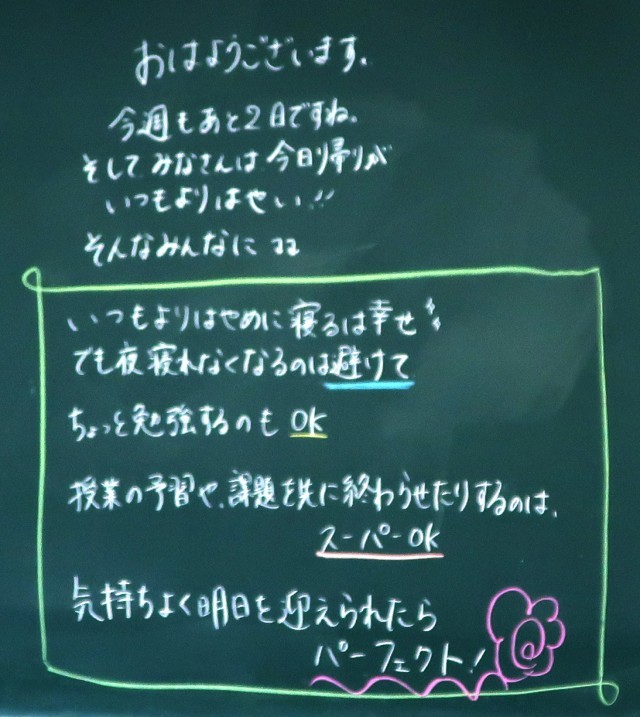 おはようございます。
今週もあと2日ですね。
そして、みなさんは今日帰りが
いつもよりはやい!!
そんなみんなに ココ
いつもよりはやめに寝るは幸せ
でも夜寝れなくなるのは避けて
ちょっと勉強するのも OK
授業の予習や、課題を先に終わらせたりするのは、
スーパーOK
気持ちよく明日を迎えられたら
パーフェクト!